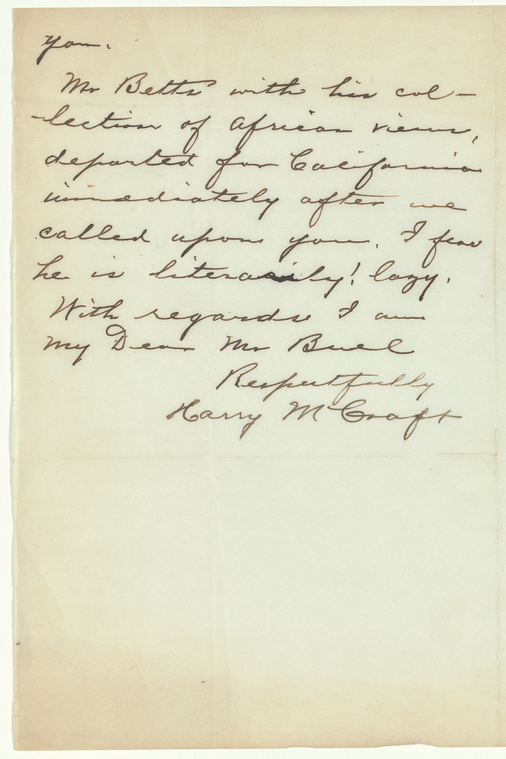 you.
Mr Betts with his col-
-lection of African views,
departed for California
immediately after we
called upon you. I fear
he is literarily! lazy.
With regards I am
My Dear Mr Buel
Respectfully
Harry McCraft